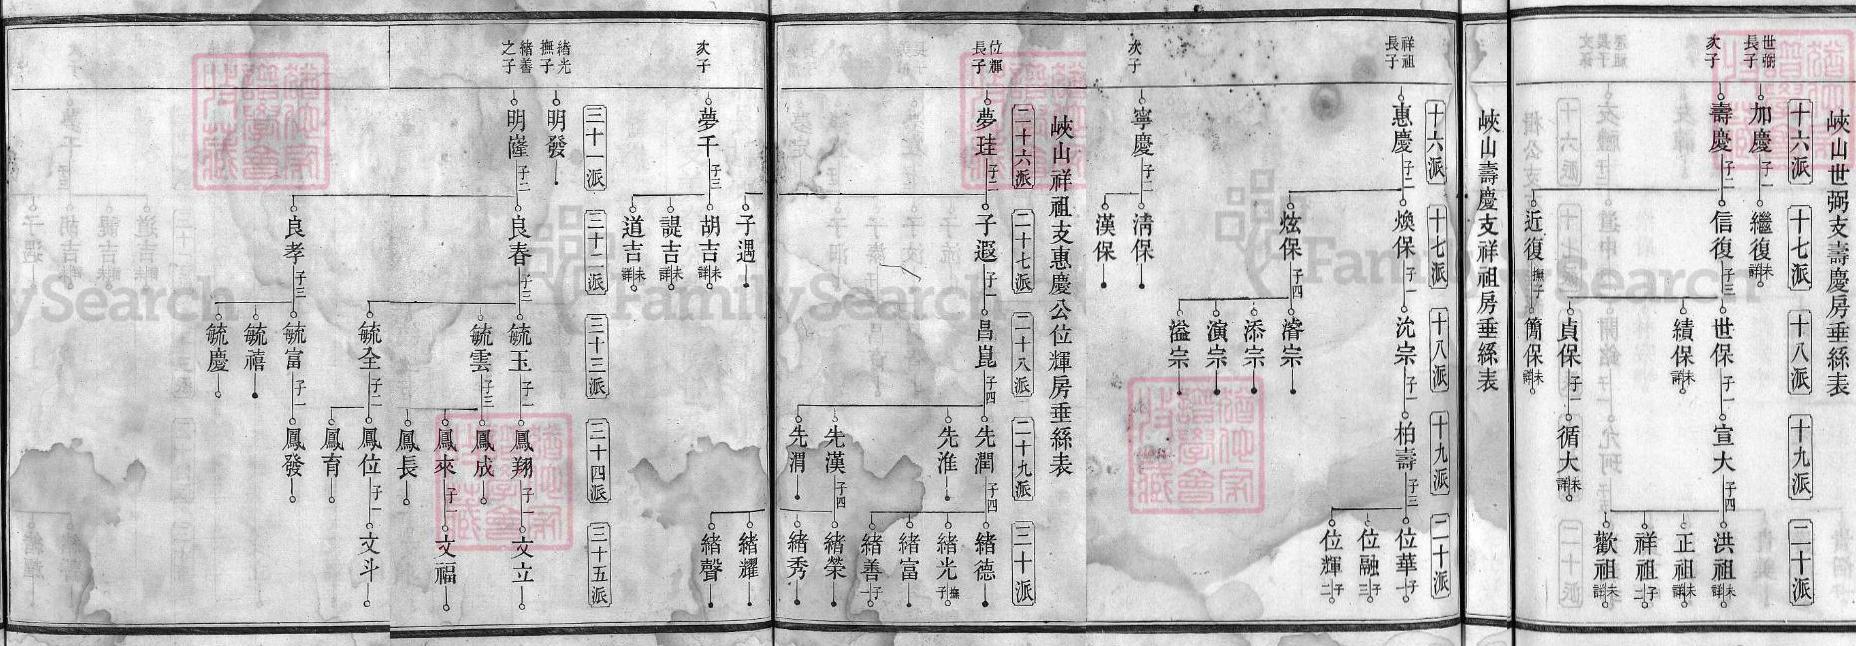 峽山世弼支壽慶房垂絲表
十六派
十七派
十八派
十九派
二十派
世弼長子
加慶
子一
繼復
未詳
次子
壽慶
子二
信復
子三
世保
子一
宣大
子四
洪祖
未詳
正祖
未詳
祥祖
子二
歡祖
未詳
績保
未詳
貞保
子一
循大
未詳
近復
撫子
簡保
未詳
峽山壽慶支祥祖房垂絲表
十六派
十七派
十八派
十九派
二十派
祥祖長子
惠慶
子二
煥保
子一
沈宗
子一
柏壽
子三
位華
子一
位融
子三
位輝
子二
炫保
子四
濳宗
添宗
演宗
溢宗
次子
寧慶
子二
淸保
漢保
峽山祥祖支惠慶公位輝房垂絲表
二十六派
二十七派
二十八派
二十九派
三十派
位輝長子
夢珪
子二
子遐
子一
昌崑
子四
先潤
子四
緒德
緒光
撫子
緒富
緒善
子一
先淮
先漢
子四
緒榮
緒秀
先渭
緒耀
緒聲
子遇
次子
夢千
子三
胡吉
未詳
諟吉
未詳
道吉
未詳
三十一派
三十二派
三十三派
三十四派
三十五派
緒光撫子
明發
緒善之子
明隆
子二
良春
子三
毓玉
子一
鳳翔
子一
文立
毓雲
子三
鳳成
鳳來
子一
文福
鳳長
毓全
子二
鳳位
子一
文斗
鳳育
良孝
子三
毓富
子一
鳳發
毓禧
毓慶
FamilySearch
FamilySearch
ySearch